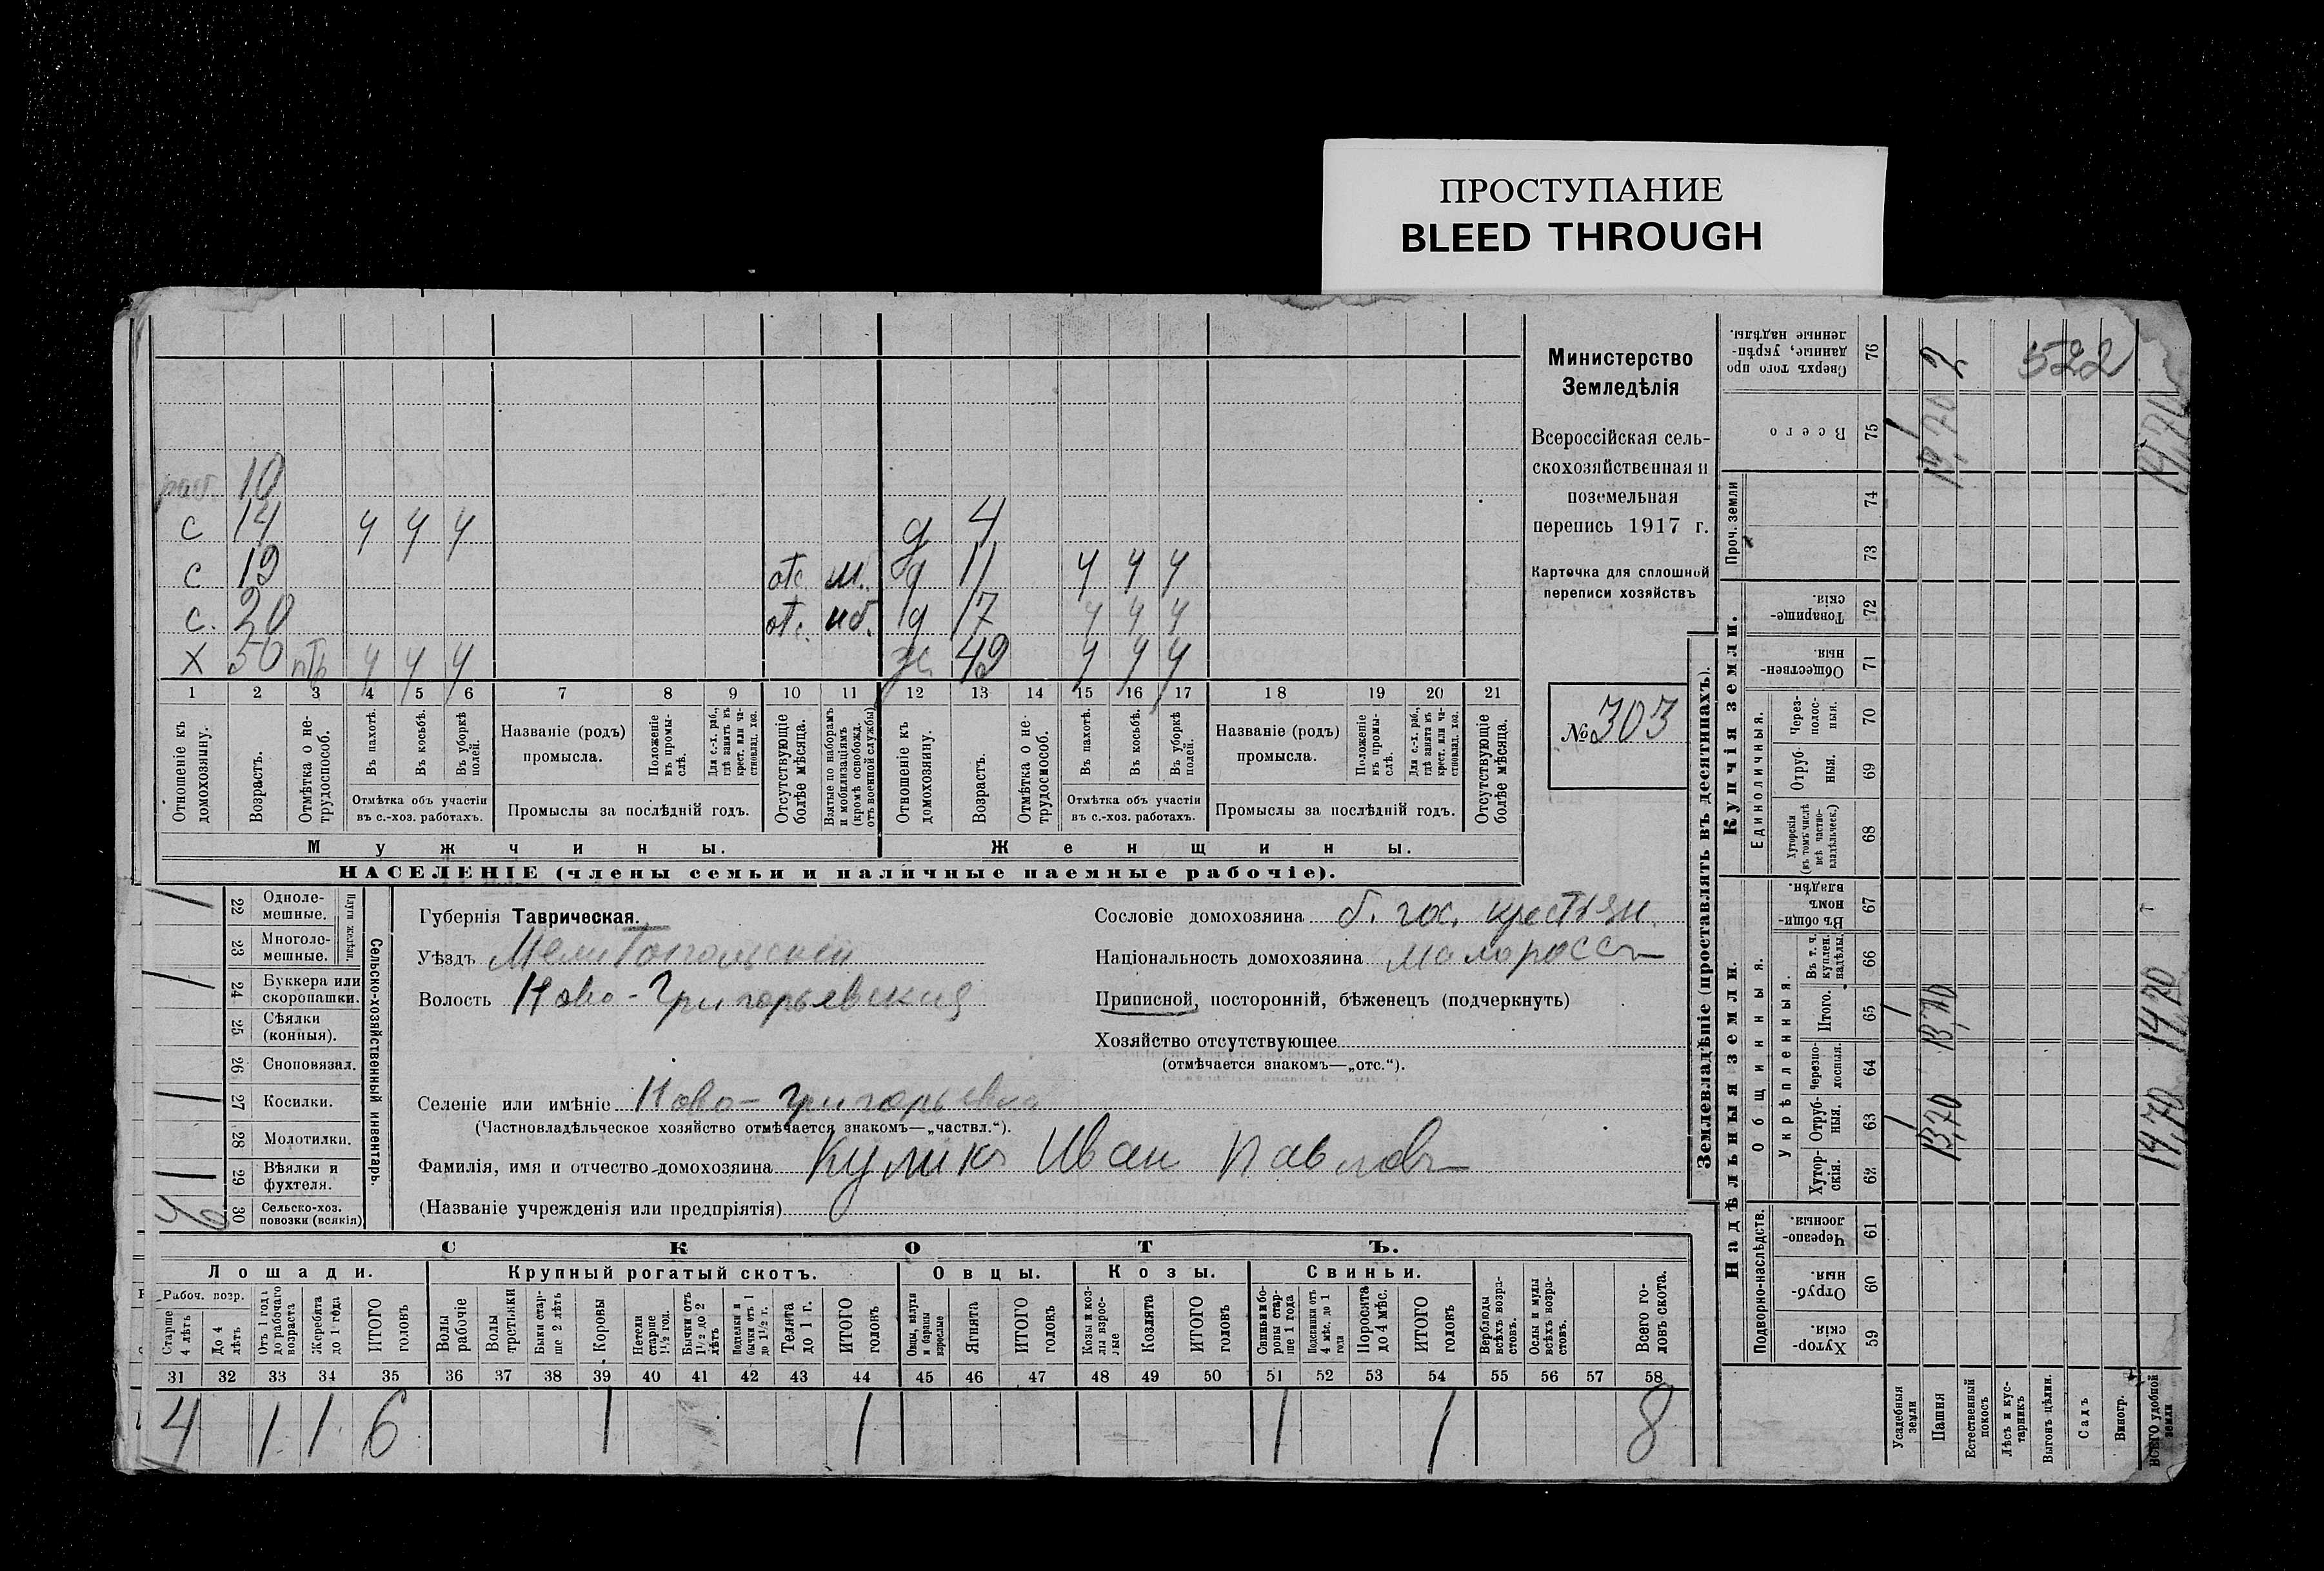 ПРОСТУПАНИЕ
BLEED THROUGH
Министерство
Земледѣлія
Всероссійская сель-
скохозяйственная и
поземельная
перепись 1917 г.
Карточка для сплошной
переписи хозяйствъ
№ 303
раб. 10
с 14 ч ч ч д 4
с 19 отс м. д 11 ч ч ч
с. 20 отс. д 17 ч ч ч
Х 50 ч ч ч ж 49 ч ч ч
1 2 3 4 5 6 7 8 9 10 11 12 13 14 15 16 17 18 19 20 21
Отношеніе къ домохозяину.
Возрастъ.
Отмѣтка о не-трудоспособ.
Въ пахотѣ.
Въ косьбѣ.
Въ уборкѣ полей.
Отмѣтка объ участіи
въ с.-хоз. работахъ.
Названіе (родъ)
промысла.
Положеніе въ промы-слѣ.
Для с.-х. раб., гдѣ занятъ въ крест. или ча-стновлад. хоз.
Промыслы за послѣдній годъ.
Отсутствующіе болѣе мѣсяца.
Взятые по наборамъ и мобилизаціямъ (кромѣ освобожд. отъ военной службы)
Отношеніе къ домохозяину.
Возрастъ.
Отмѣтка о не-трудоспособ.
Въ пахотѣ.
Въ косьбѣ.
Въ уборкѣ полей.
Отмѣтка объ участіи
въ с.-хоз. работахъ.
Названіе (родъ)
промысла.
Положеніе въ промы-слѣ.
Для с.-х. раб., гдѣ занята въ крест. или ча-стновлад. хоз.
Промыслы за послѣдній годъ.
Отсутствующіе болѣе мѣсяца.
Мужчины. Женщины.
НАСЕЛЕНІЕ (члены семьи и наличные наемные рабочіе).
Сельско-хозяйственный инвентарь.
Плуги желѣзн.
22 Одноле-мешные. 1
23 Многоле-мешные.
24 Буккера или скоропашки. 1
25 Сѣялки (конныя).
26 Сноповязал.
27 Косилки. 1
28 Молотилки.
29 Вѣялки и фухтеля. 1
30 Сельско-хоз. повозки (всякія)
Губернія Таврическая.
Уѣздъ Мелитопольскій
Волость Ново-Григорьевская
Селеніе или имѣніе Ново-Григорьевка
(Частновладѣльческое хозяйство отмѣчается знакомъ—„частвл.“).
Фамилія, имя и отчество домохозяина Куликъ Иван Павловъ
(Названіе учрежденія или предпріятія)
Сословіе домохозяина б. гос. крестьян.
Національность домохозяина малороссъ
Приписной, посторонній, бѣженецъ (подчеркнуть)
Хозяйство отсутствующее
(отмѣчается знакомъ—„отс.“).
СКОТЪ.
Лошади. Крупный рогатый скотъ. Овцы. Козы. Свиньи.
Рабоч. возр.
Старше 4 лѣтъ
До 4 лѣтъ
Отъ 1 года до рабочаго возраста
Жеребята до 1 года
ИТОГО головъ
Волы рабочіе
Волы
Быки стар-ше 2 лѣтъ
Коровы
Нетели старше 1½ год.
Бычки отъ 1½ до 2 лѣтъ
бычки от 1 до 1½ г.
Телята до 1 г.
ИТОГО головъ
Овцы, валухи и бараны взрослые
Ягнята
ИТОГО головъ
Козы и коз-лы взрос-лые
Козлята
ИТОГО головъ
Свиньи и бо-ровы стар-ше 1 года
Подсвинки отъ 4 мѣс. до 1 года
Поросята до 4 мѣс.
ИТОГО головъ
Верблюды всѣхъ возра-стовъ.
Ослы и мулы всѣхъ возра-стовъ.
Всего го-ловъ скота.
31 32 33 34 35 36 37 38 39 40 41 42 43 44 45 46 47 48 49 50 51 52 53 54 55 56 57 58
4 1 1 6 1 1 1 1 8
Землевладѣніе (проставлять въ десятинахъ).
Купчія земли.
Надѣльныя земли.
Сверхъ того про данные, укрѣп-ленные надѣлы. 76 2
Всего 75 1 13,70 14,70
Проч. земли 74 73
Товарище-скія. 72
Обществен-ныя. 71
Единоличныя.
Через-полос-ныя. 70
Отруб-ныя. 69
Хуторскія (въ томъ числѣ всѣ частно-владѣльческ.) 68
Общинныя.
Въ общин-номъ владѣн. 67
Укрѣпленныя.
Въ т. ч. куплен. надѣлы. 66
Итого. 65 1 13,70 14,70
Черезпо-лосныя. 64
Отруб-ныя. 63 1 13,70 14,70
Хутор-скія. 62
Подворно-наслѣдств.
Черезпо-лосныя. 61
Отруб-ныя. 60
Хутор-скія. 59
Усадебныя земли
Пашня
Естественный покосъ
Лѣсъ и кус-тарникъ
Выгонъ цѣлин.
Садъ
Виногр.
ВСЕГО удобной земли
522